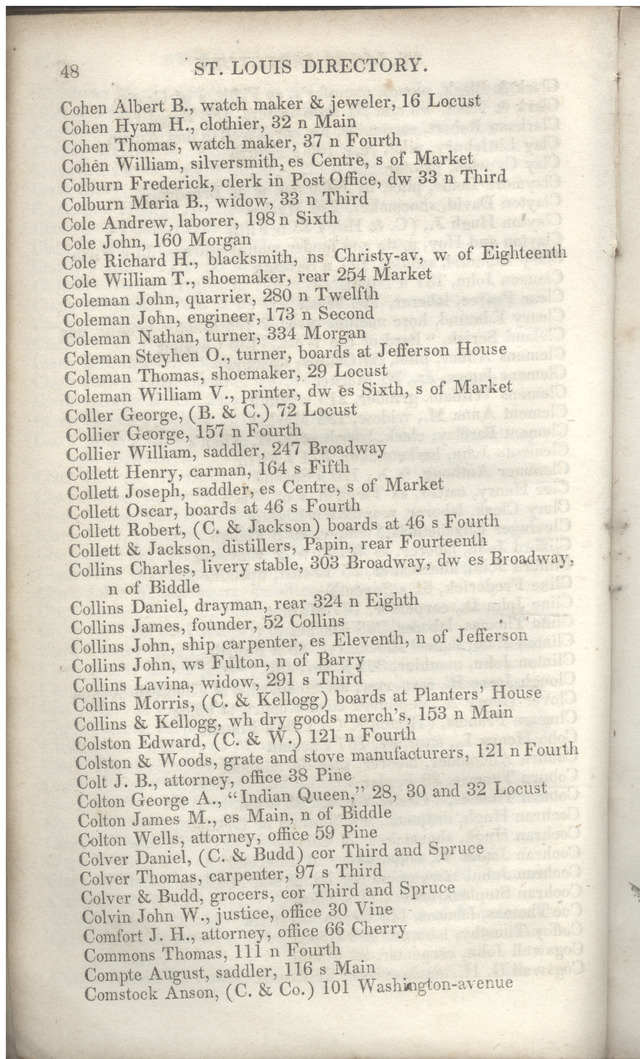 48 ST. LOUIS DIRECTORY.
Cohen Albert B., watch maker & jeweler, 16 Locust
Cohen Hyam H., clothier, 32 n Main
Cohen Thomas, watch maker, 37 n Fourth
Cohen William, silversmith, es Centre, s of Market
Colburn Frederick, clerk in Post Office, dw 33 n Third
Colburn Maria B., widow, 33 n Third
Cole Andrew, laborer, 198 n Sixth
Cole John, 160 Morgan
Cole Richard H., blacksmith, ns Christy-av, w of Eighteenth
Cole William T., shoemaker, rear 254 Market
Coleman John, quarrier, 280 n Twelfth
Coleman John, engineer, 173 n Second
Coleman Nathan, turner, 334 Morgan
Coleman Steyhen O., turner, boards at Jefferson House
Coleman Thomas, shoemaker, 29 Locust
Coleman William V., printer, dw es Sixth, s of Market
Coller George, (B. & C.) 72 Locust
Collier George, 157 n Fourth
Collier William, saddler, 247 Broadway
Collett Henry, carman, 164 s Fifth
Collett Joseph, saddler, es Centre, s of Market
Collett Oscar, boards at 46 s Fourth
Collett Robert, (C. & Jackson) boards at 46 s Fourth
Collett & Jackson, distillers, Papin, rear Fourteenth
Collins Charles, livery stable, 303 Broadway, dw es Broadway,
n of Biddle
Collins Daniel, drayman, rear 324 n Eighth
Collins James, founder, 52 Collins
Collins John, ship carpenter, es Eleventh, n of Jefferson
Collins John, ws Fulton, n of Barry
Collins Lavina, widow, 291 s Third
Collins Morris, (C. & Kellogg) boards at Planters' House
Collins & Kellogg, wh dry goods merch's, 153 n Main
Colston Edward, (C. & W.) 121 n Fourth
Colston & Woods, grate and stove manufacturers, 121 n Fourth
Colt J. B., attorney, office 38 Pine
Colton George A., "Indian Queen," 28, 30 and 32 Locust
Colton James M., es Main, n of Biddle
Colton Wells, attorney, office 59 Pine
Colver Daniel, (C. & Budd) cor Third and Spruce
Colver Thomas, carpenter, 97 s Third
Colver & Budd, grocers, cor Third and Spruce
Colvin John W., justice, office 30 Vine
Comfort J. H., attorney, office 66 Cherry
Commons Thomas, 111 n Fourth
Compte August, saddler, 116 s Main
Comstock Anson, (C. & Co.) 101 Washington-avenue